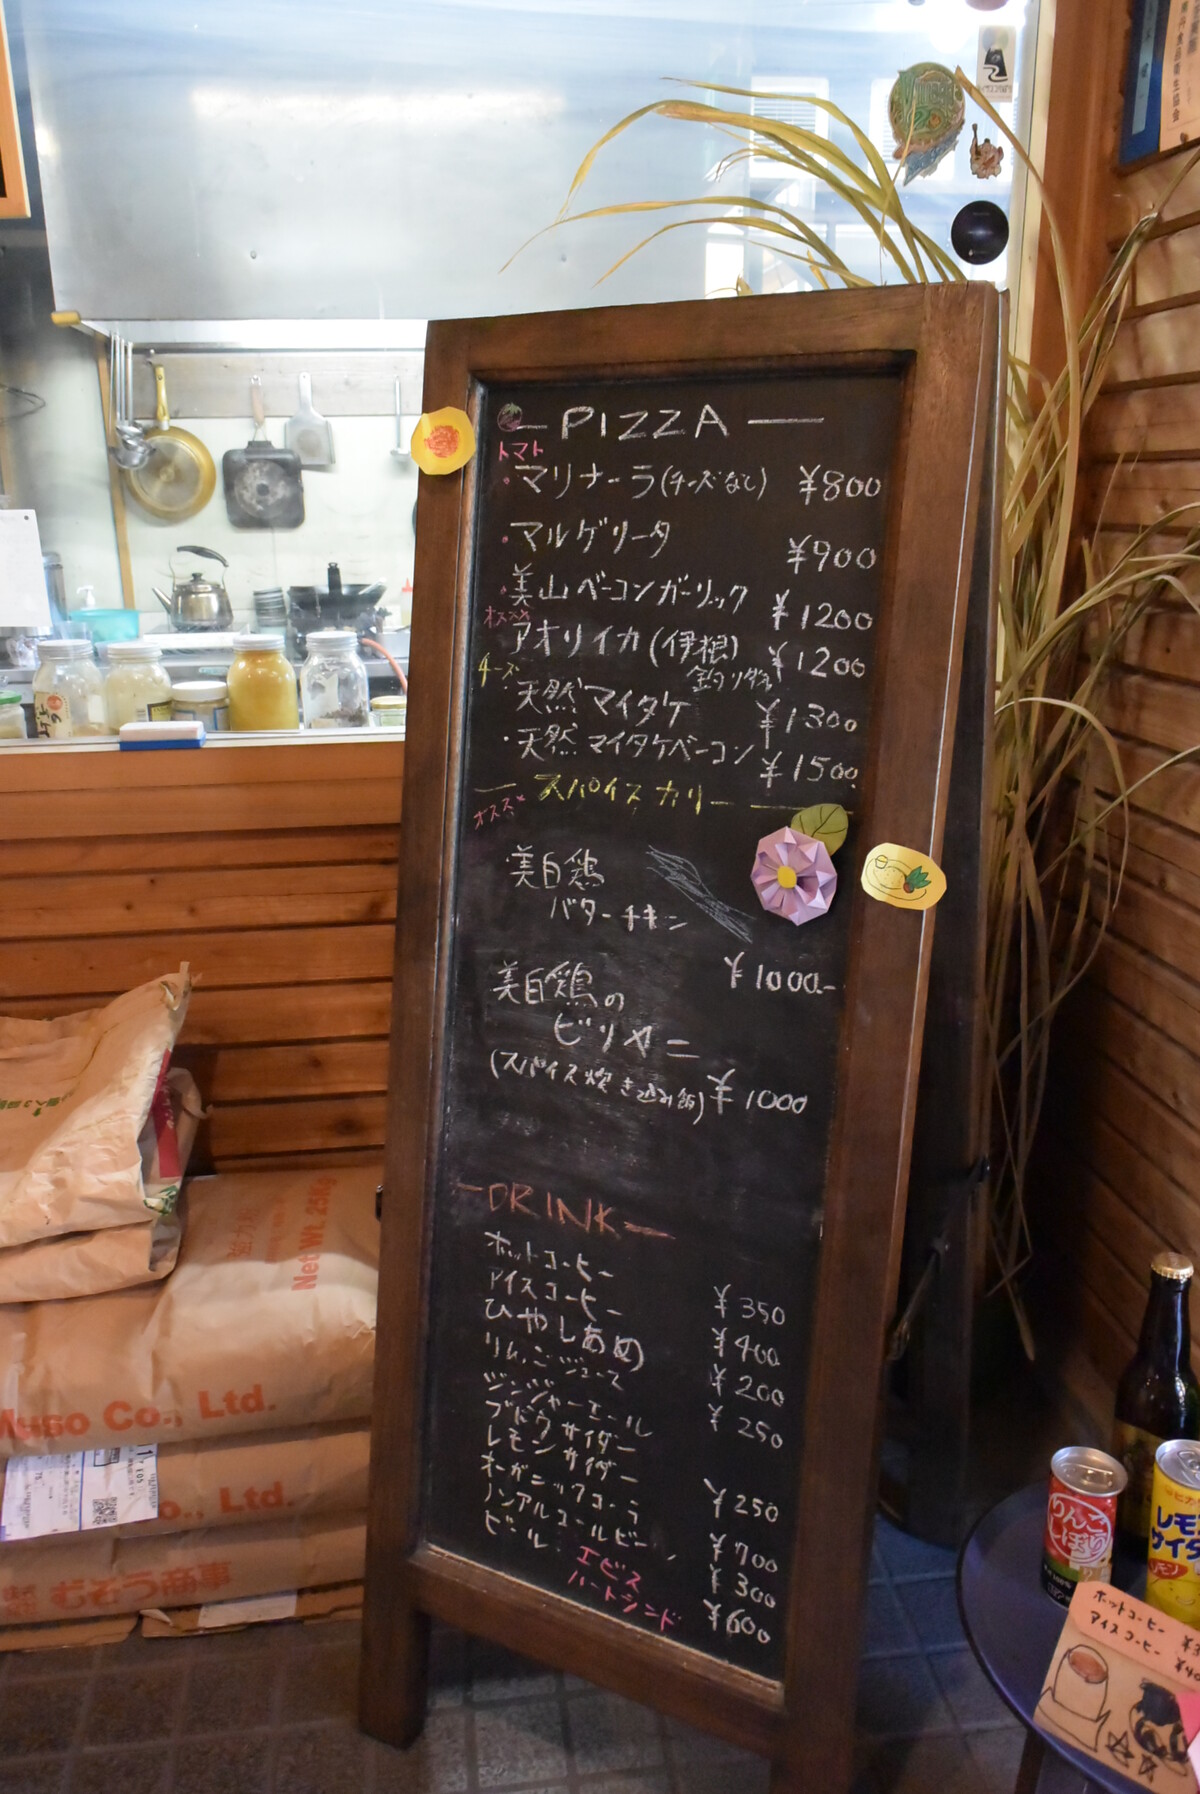 — PIZZA —
トマト
・マリナーラ(チーズなし) ¥800
・マルゲリータ ¥900
・美山ベーコンガーリック ¥1200
オススメ
アオリイカ(伊根) ¥1200
釣りダネ
チーズ
・天然マイタケ ¥1300
・天然マイタケベーコン ¥1500
— スパイスカリー —
オススメ
・美白鶏
バターチキン
¥1000-
美白鶏の
ビリヤニ
(スパイス炊き込み飯) ¥1000
-DRINK-
ホットコーヒー ¥350
アイスコーヒー ¥400
ひやしあめ ¥200
りんごジュース ¥250
ジンジャーエール
ブドウサイダー
レモンサイダー ¥250
オーガニックコーラ ¥700
ノンアルコールビール ¥300
ビール ¥600
エビス
ハートランド
Net Wt. 25Kg
Muso Co., Ltd.
Co., Ltd.
むそう商事
りんご
しぼり
レモン
サイダ
レモン
ホットコーヒー
アイスコーヒー